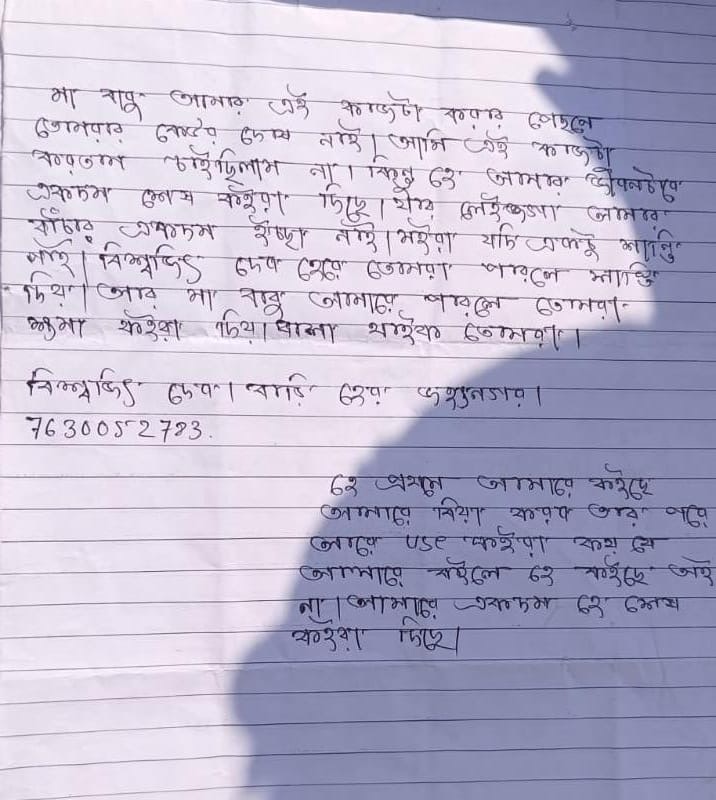 মা বাবু আমার এই কাজটা করার পেছনে
তোমরার কোনো দোষ নাই। আমি এই কাজটা
করতাম চাইছিলাম না। কিন্তু হে আমার জীবনটারে
একদম শেষ কইরা দিছে। যার লেইগ্গা আমার
বাঁচার একদম ইচ্ছা নাই। মইরা যদি একটু শান্তি
পাই। বিশ্বজিৎ দেব হেরে তোমরা পারলে শাস্তি
দিয়। আর মা বাবু আমারে পারলে তোমরা
ক্ষমা কইরা দিয়। ভালা থাইক তোমরা।
বিশ্বজিৎ দেব। বাড়ি হের
7630052783.
হে প্রথমে আমারে কইছে
আমারে বিয়া করব তার পরে
আমারে use কইরা কয় যে
আমারে কইলে হে কইছে
না। আমারে একদম হে শেষ
কইরা দিছে।